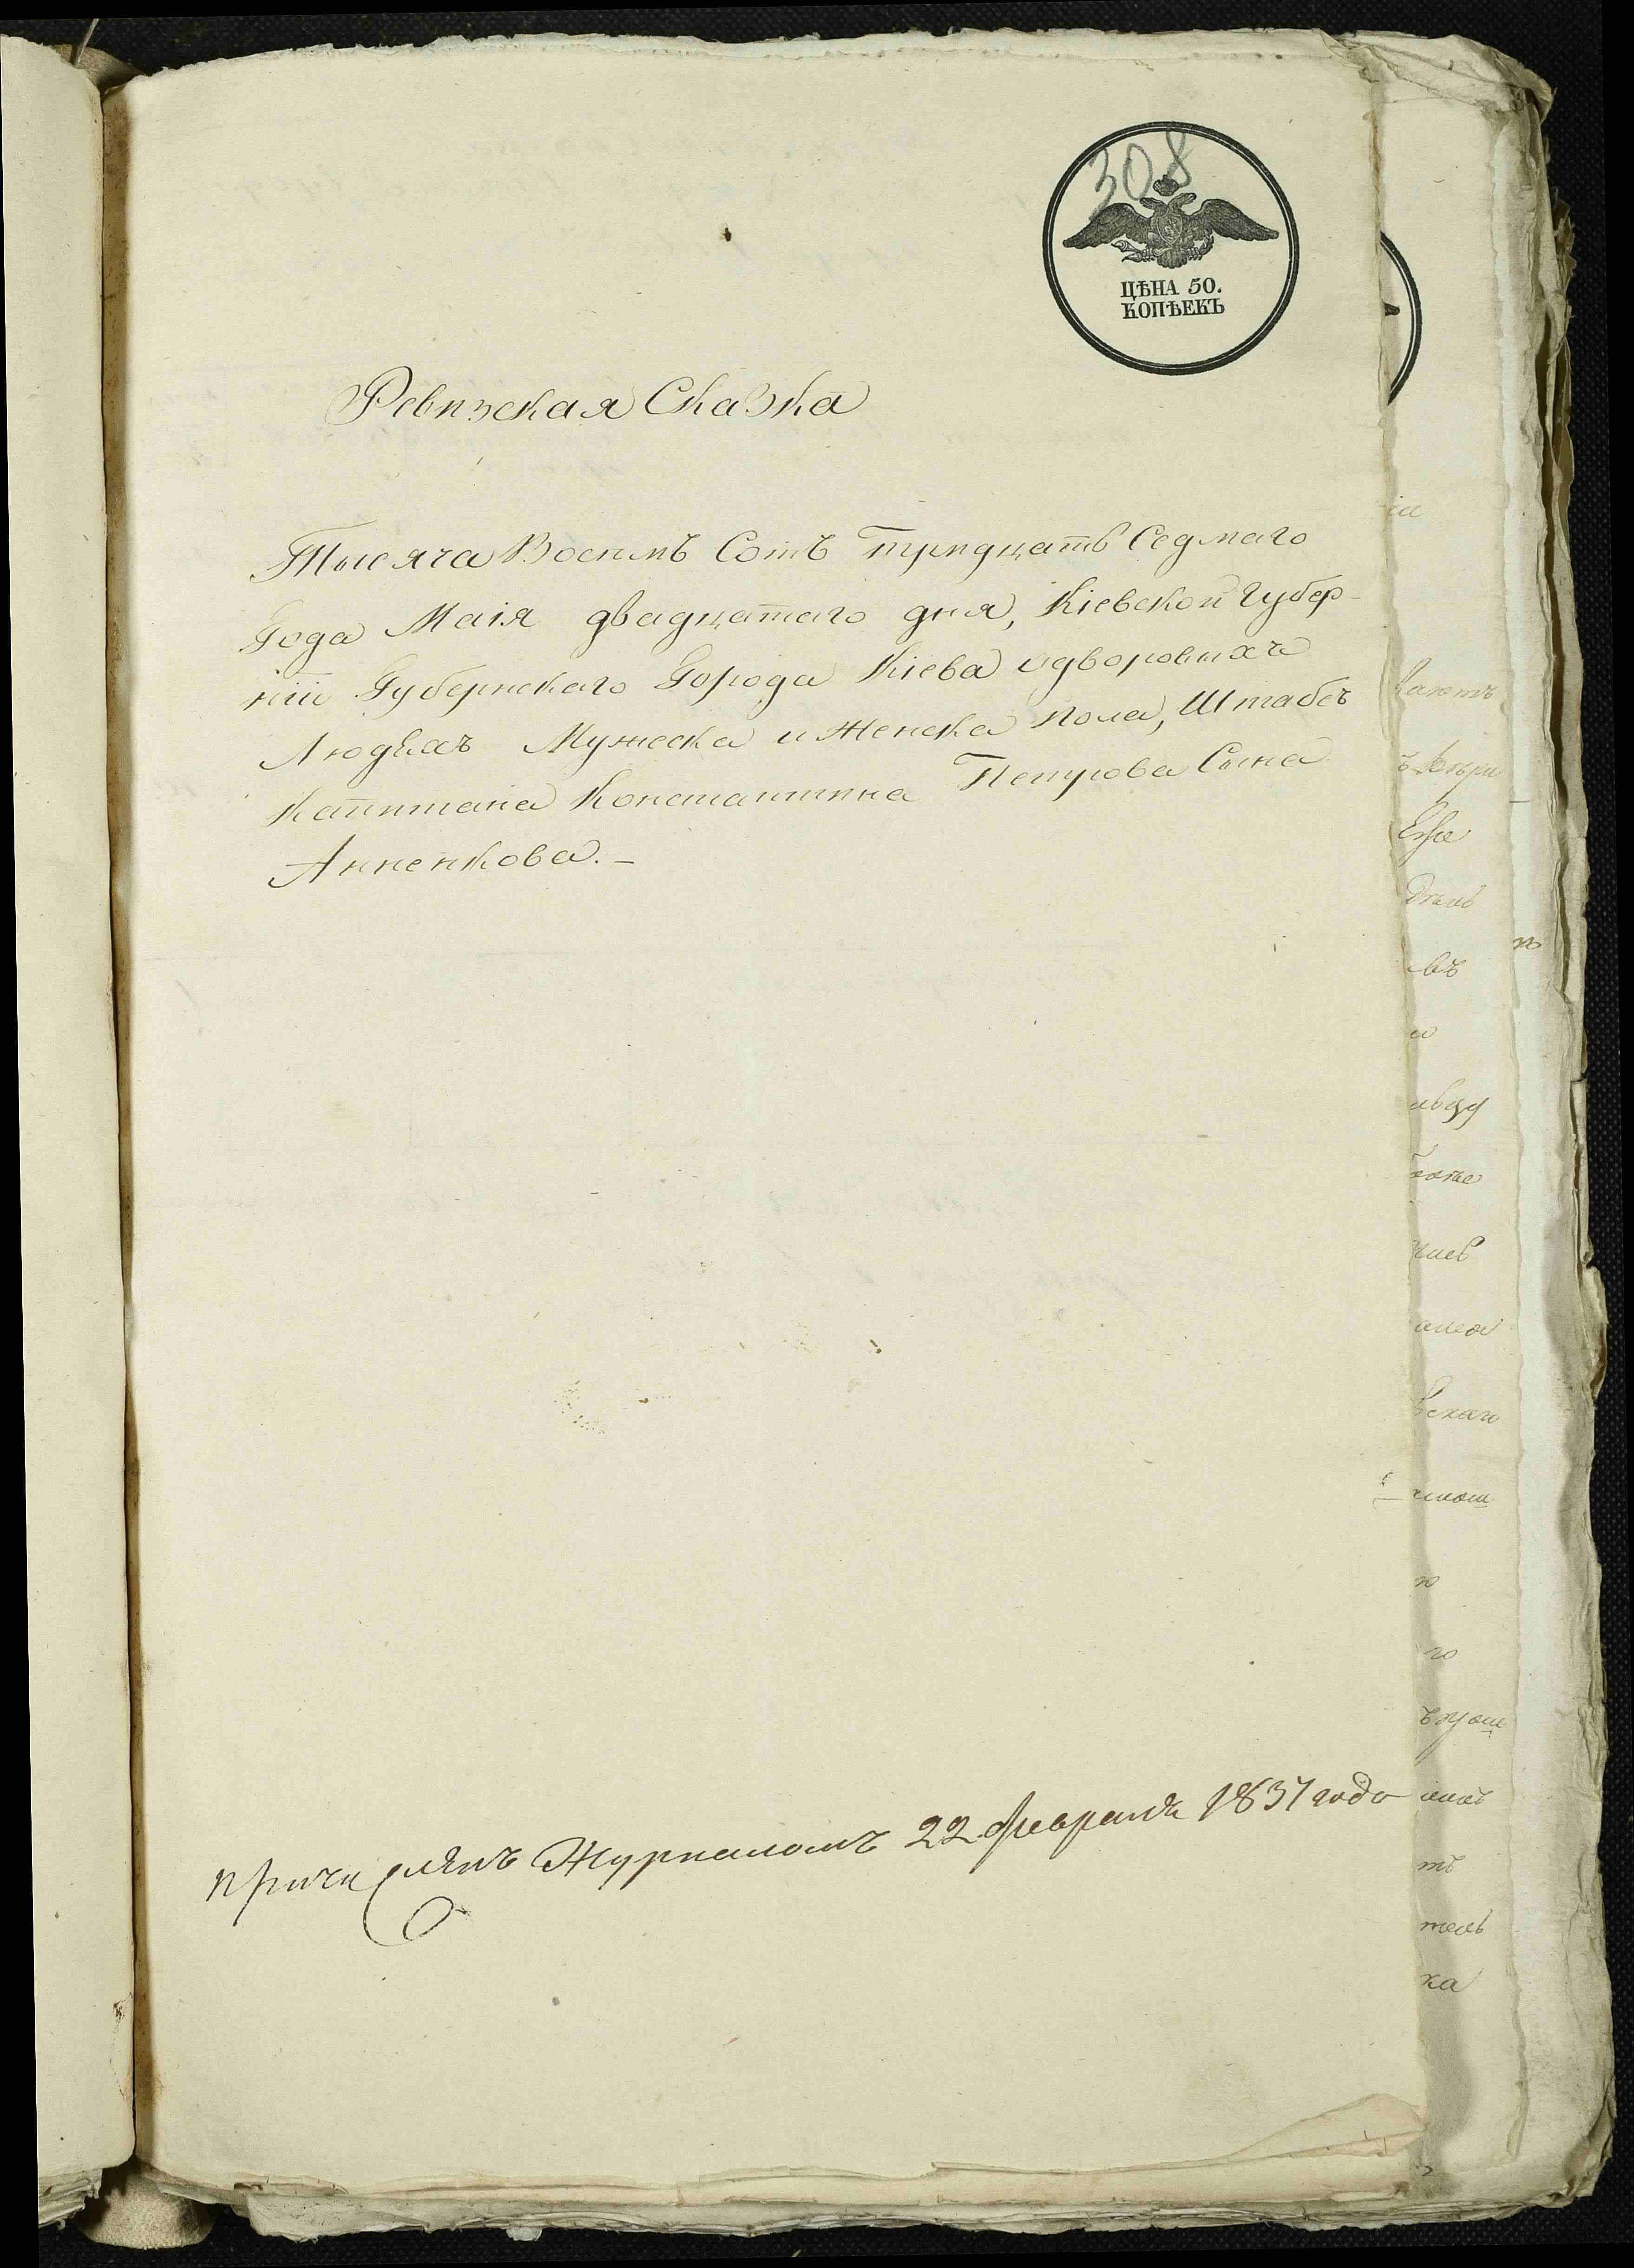 308
ЦѢНА 50.
КОПѢЕКЪ
Ревизская Сказка
Тысяча Восемъ Сотъ тридцать Седмаго
Года Маія двадцатаго дня, Кіевской Губер-
ніи Губернскаго Города Кіева одворовыхъ
Людяхъ Мужеска и Женска пола, Штабсъ
Капитана Константина Петрова Сына
Анненкова. –
Причислянъ Журналомъ 22 февраля 1837 года